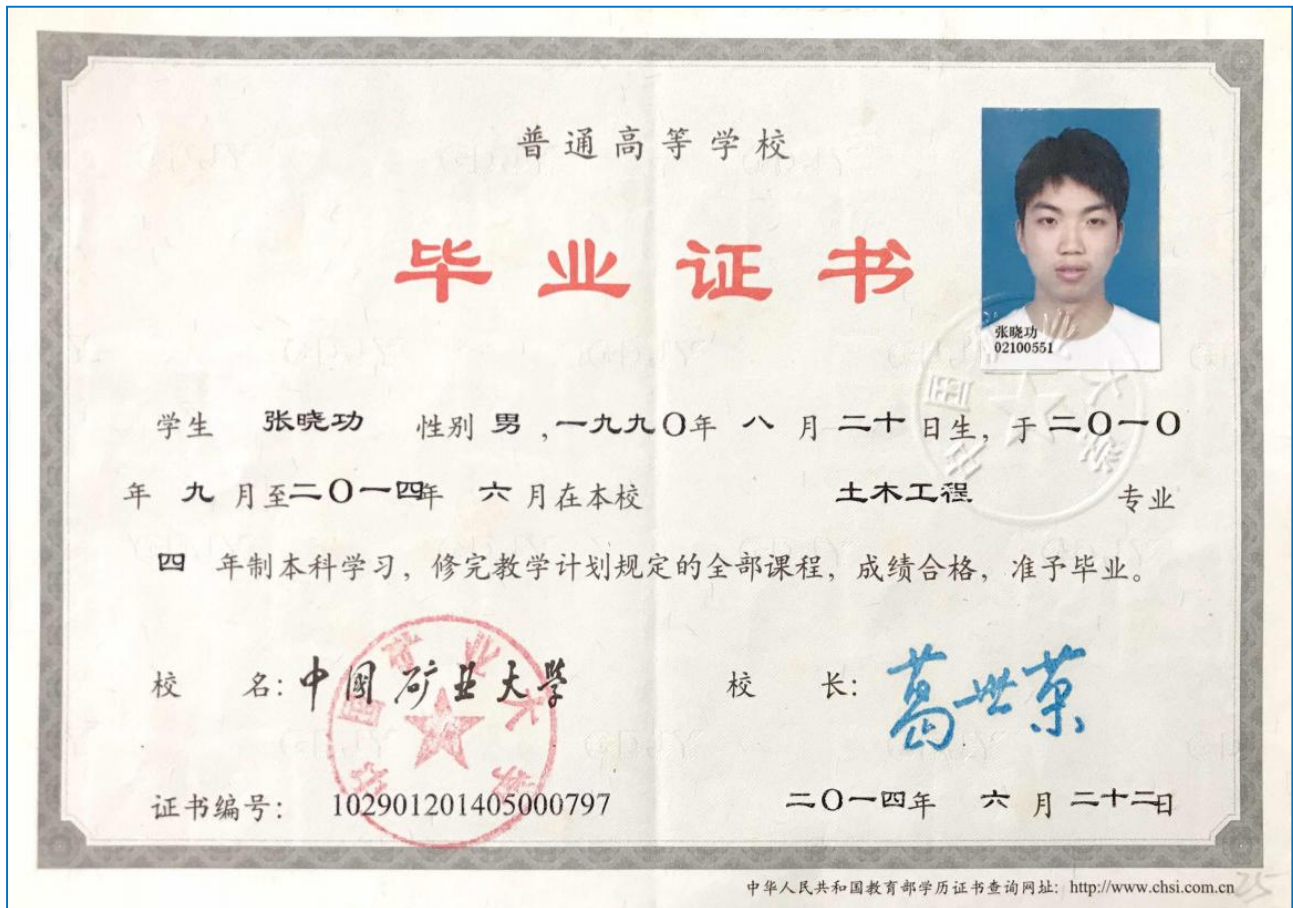 普通高等学校
毕业证书
张晓功
02100551
学生 张晓功 性别 男,一九九〇年 八 月 二十 日生,于二〇一〇
年 九 月至二〇一四年 六 月在本校 土木工程 专业
四 年制本科学习,修完教学计划规定的全部课程,成绩合格,准予毕业。
校 名:中國矿业大学 校 长:葛世荣
中国矿业大学
证书编号: 102901201405000797 二〇一四年 六 月 二十二日
中华人民共和国教育部学历证书查询网址: http://www.chsi.com.cn
25